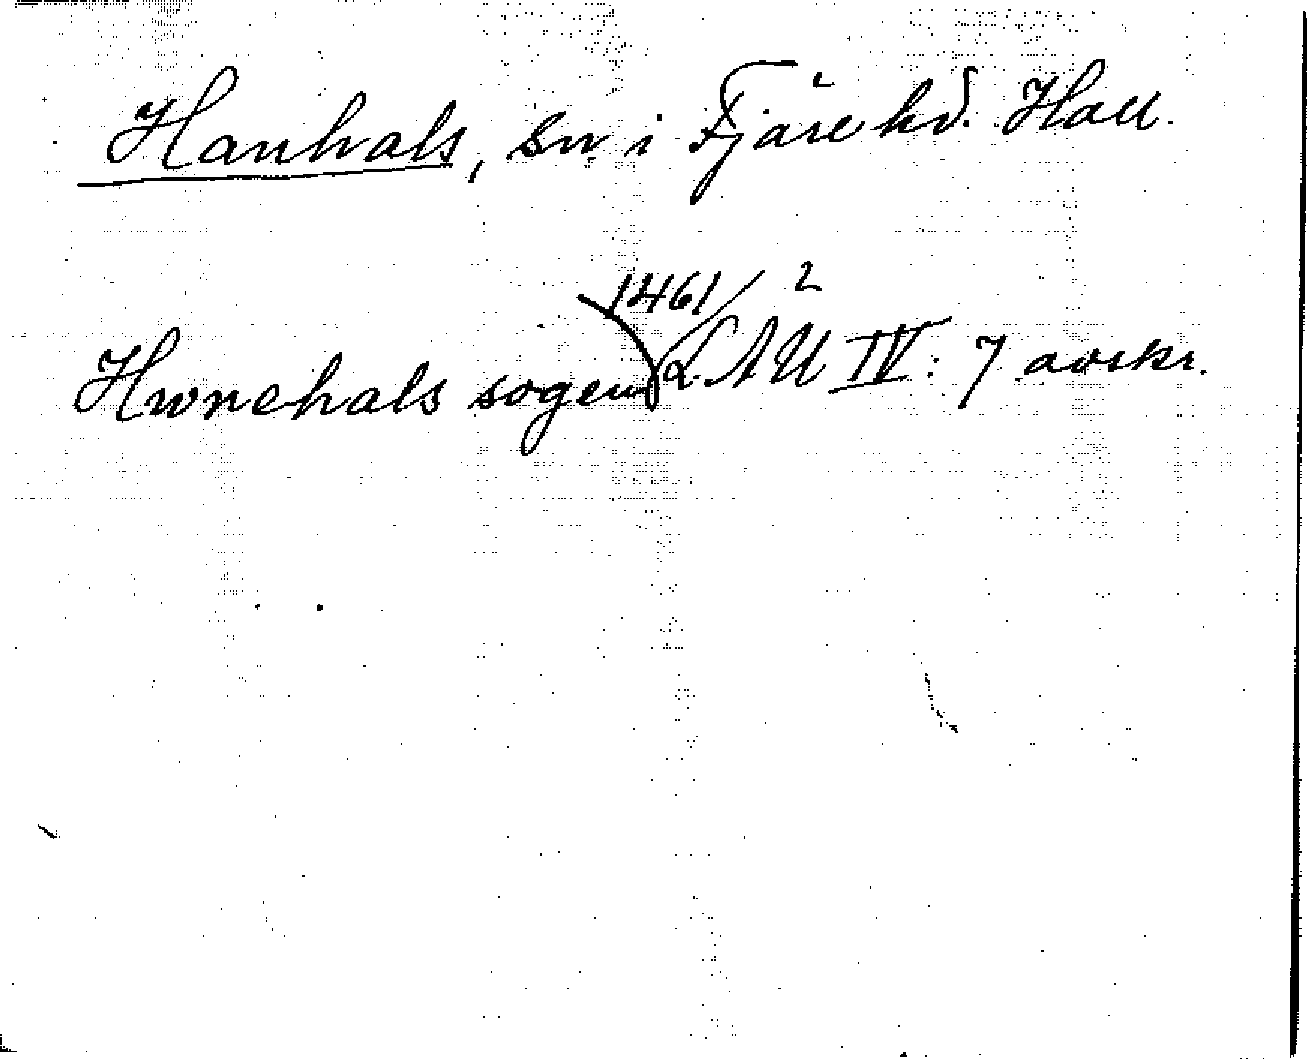 Hanhals, sn i Fjäre hd. Hall.
1461/ 2
Hwnehals sogen LAU IV: 7 avskr.